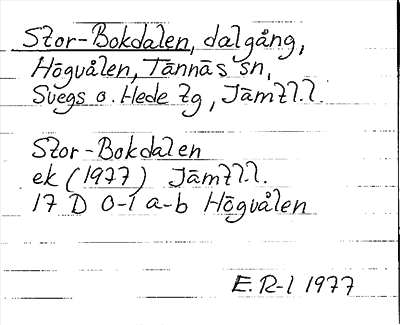 Stor-Bokdalen, dalgång,
Högvålen, Tännäs sn,
Svegs o. Hede tg, Jämtl.l.
Stor-Bokdalen
ek (1977) Jämtl.l.
17 D 0-1 a-b Högvålen
E.R-l 1977